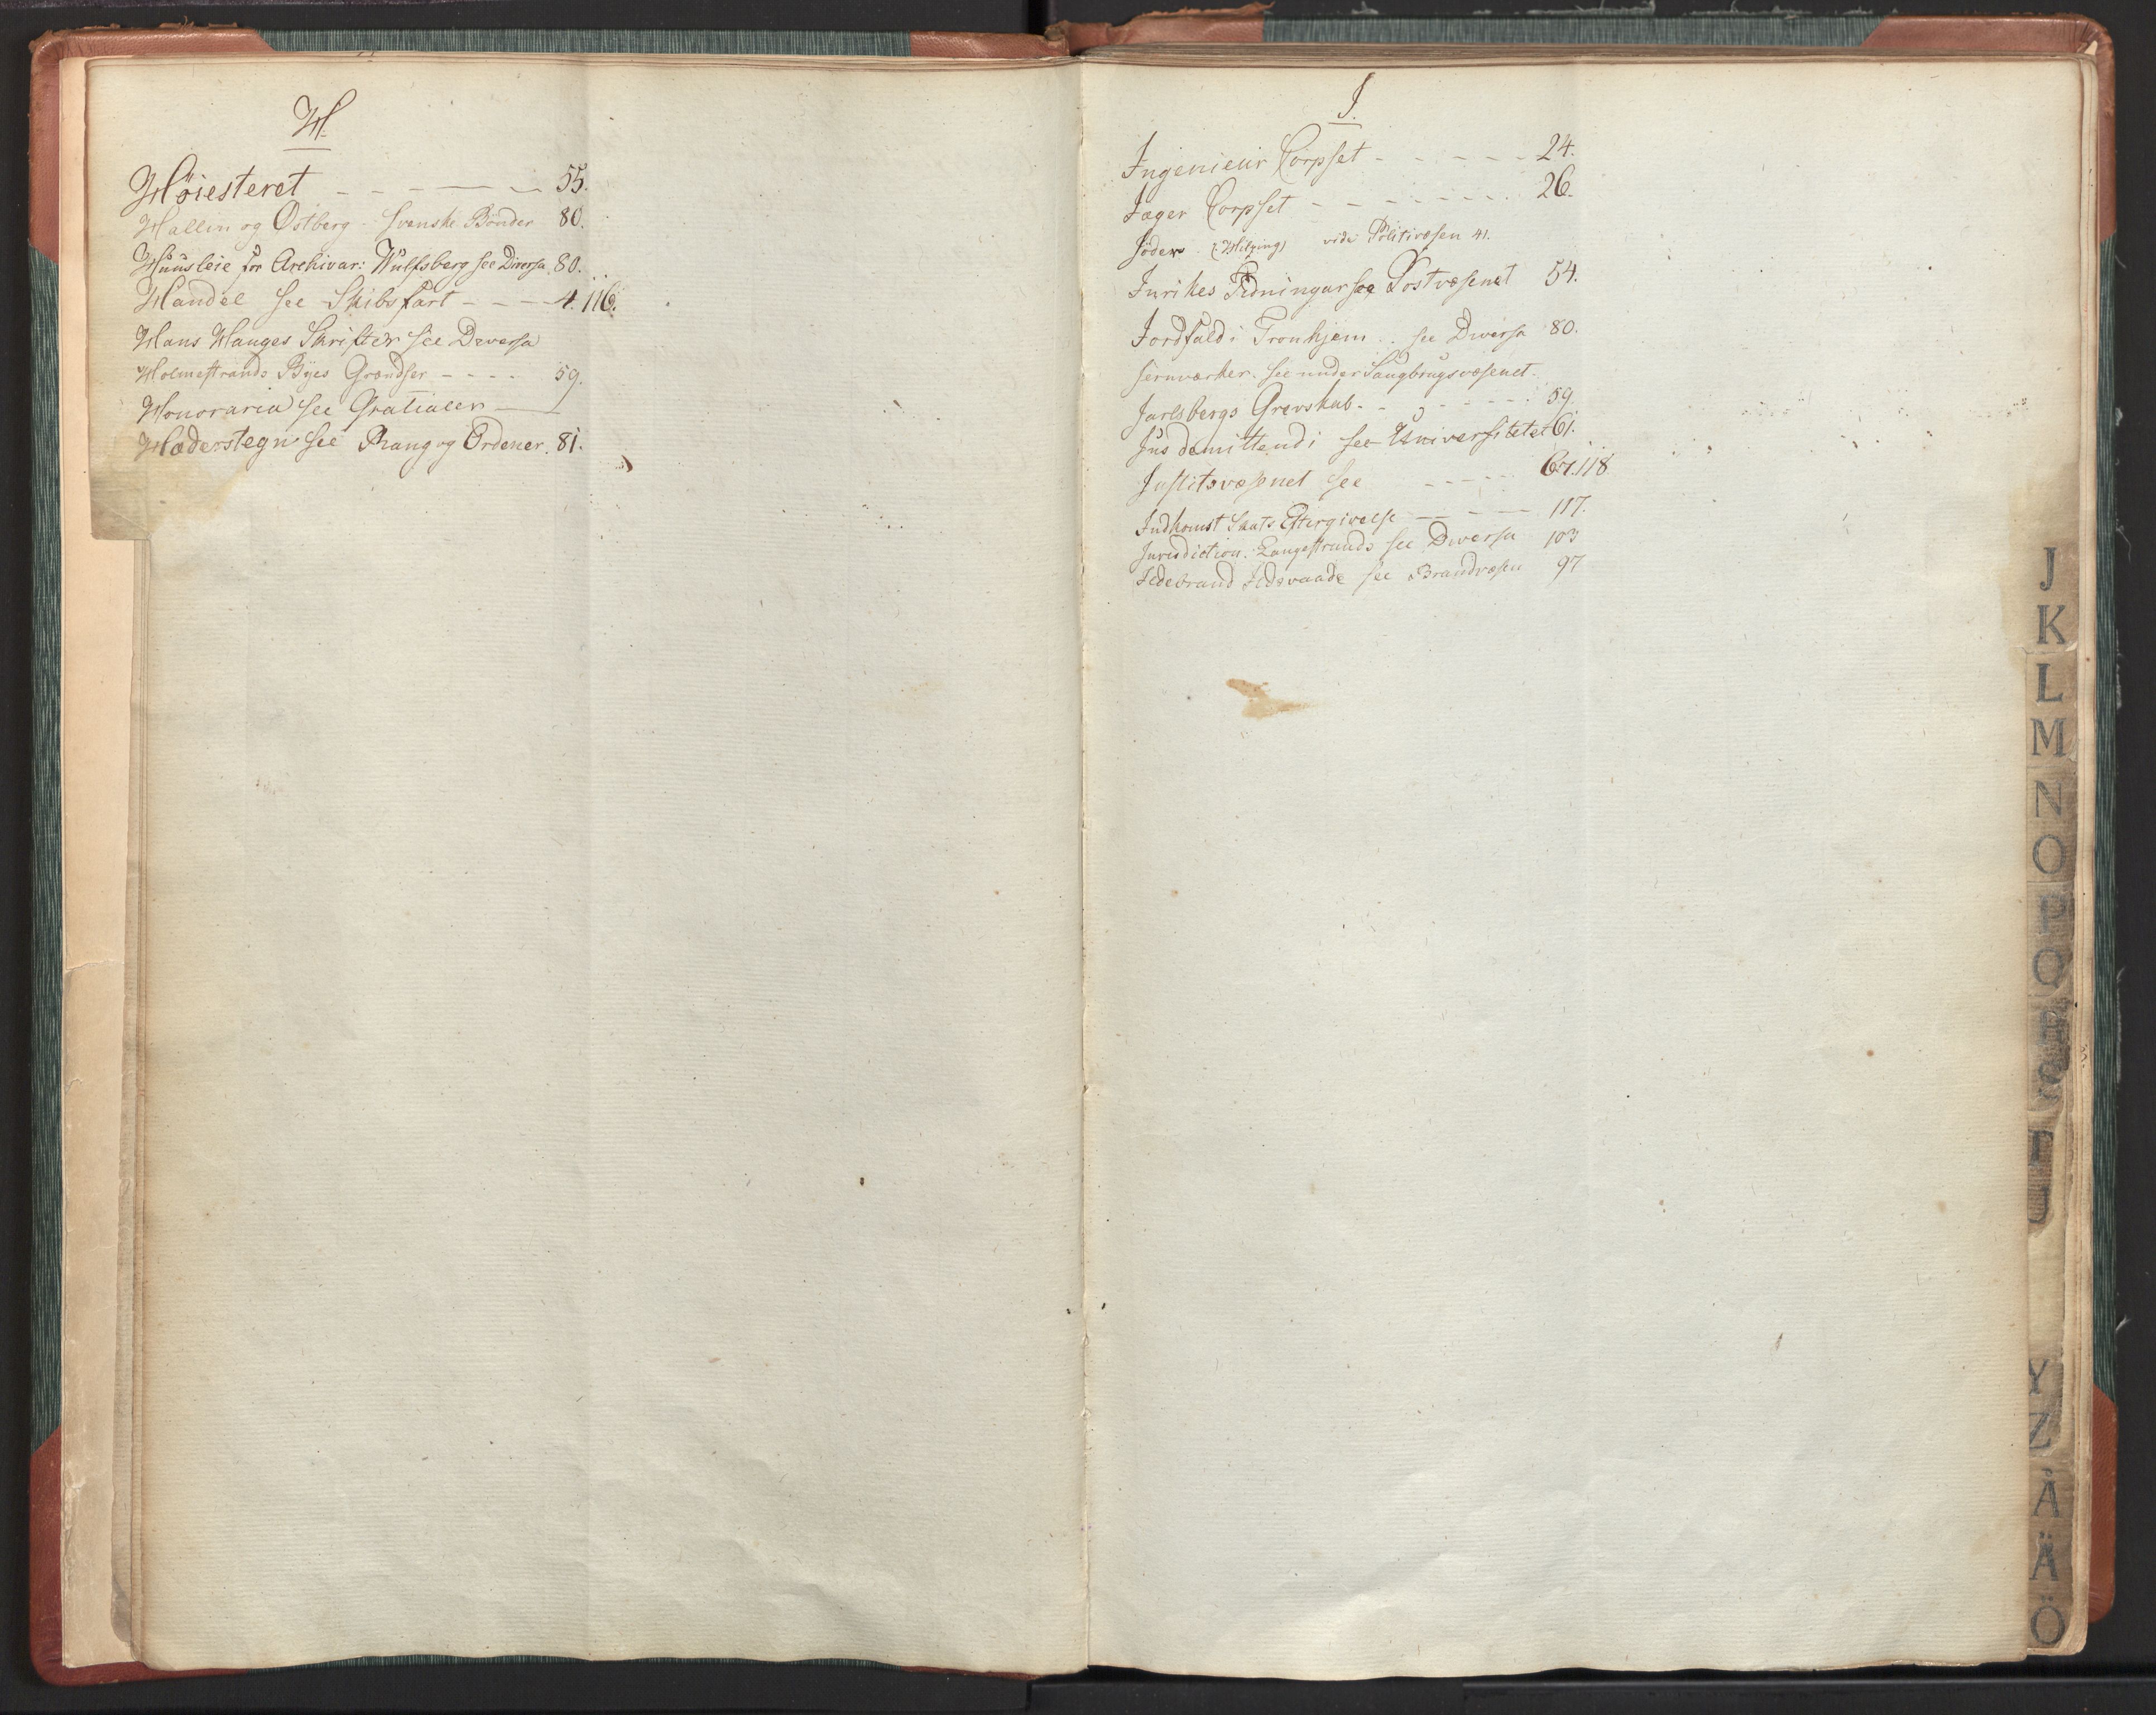 H.
Höiesteret - - - - - 55.
Hallin og Östberg - Svenske Bönder 80.
Huusleie for Archivar: Wulfsberg see Diversa 80.
Handel see Skibsfart - - - - 4. 116.
Hans Hauges Skrifter see Diversa
Holmestrands Byes Grændser - - - - 59.
Honoraria see Gratialer
Hæderstegn see Rang og Ordener. 81.
I.
Ingenieur Corpset - - - - - 24.
Jæger Corpset - - - - - - - 26.
Jöder vide Politivæsen 41.
Inrikes Tidningar see Postvæsenet 54.
Jordfald i Tronhjem .. see Diversa 80.
Jernværker. see under Saugbrugsvæsenet.
Jarlsbergs Grevskab. - - - - - - 59.
Jus demittendi see Universitetet 61.
Justitsvæsenet see - - - - - 67. 118
Indkomst Skats Eftergivelse - - - - 117.
Jurisdiction. Langestrands see Diversa 103
Ildebrand Ildsvaade see Brandvæsen 97
J
K
L
M
N
O
P
Q
R
S
T
U
Y
Z
Å
Ä
Ö